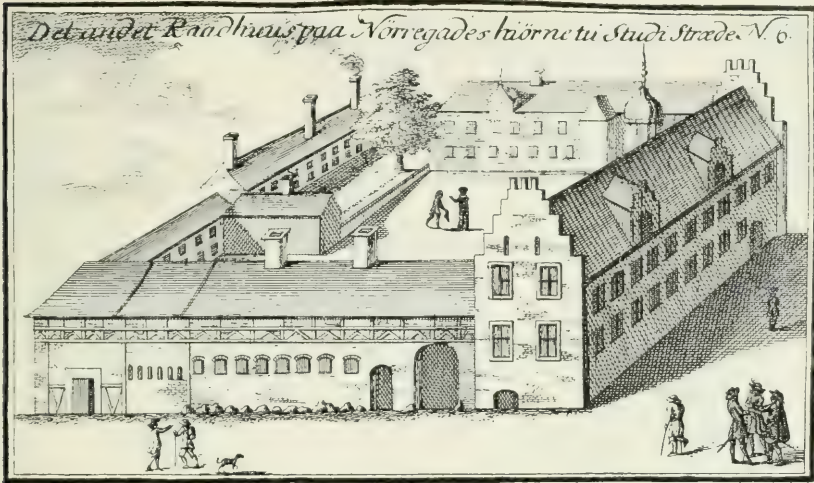 Det andet Raadhuus paa Nörregades hiörne til Studi Stræde N. 6.